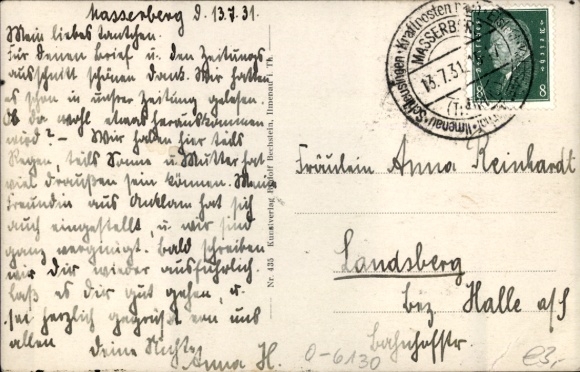 Masserberg d. 13.7.31.
Mein liebes Tantchen.
Für Deinen Brief u. den Zeitungs-
ausschnitt schönen Dank. Wir hatten
es schon in unsrer Zeitung gelesen.
Ob da wohl etwas herauskommen
wird? – Wir haben hier teils
Regen, teils Sonne u. Mutter hat
viel draußen sein können. Meine
Freundin aus Anklam hat sich
auch eingestellt, u. wir sind
ganz vergnügt. Bald schreiben
wir Dir wieder ausführlich.
Laß es Dir gut gehen, u.
sei herzlich gegrüßt von uns
allen
Deine Nichte
Anna H.
Nr. 435 Kunstverlag Rudolf Bechstein, Ilmenau i. Th.
MASSERBERG
13.7.31
(Th)
Schleusingen · Kraftposten
Ilmenau
8 8
Fräulein Anna Reinhardt
Landsberg
bez. Halle a/S
Bahnhofstr.
0-6130
e3,-